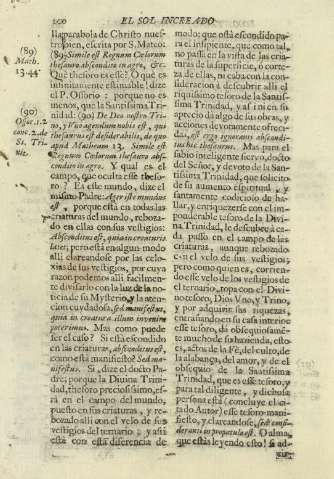 200 EL SOL INCREADO
(89)
Math.
13.44.
(90)
Ossor. t. 2
conc. 2. de
SS. Tri-
nit.
lla parabola de Christo nues-
tro bien, escrita por S. Mateo:
(89) Simile est Regnum Cœlorum
thesauro abscondito in agro, &c.
Què thesoro es aqueste? O què es
infinitamente estimable! dize
el P. Ossorio: porque no es
menos, que la Santissima Tri-
nidad: (90) De Deo nostro Tri-
no, & Vno agendum nobis est, qui
thesaurus est desiderabilis, de quo
apud Matheum 13. Simile est
Regnum Cœlorum thesauro abscon-
dito in agro. Y qual es el
campo, que oculta esse theso-
ro? Es este mundo, dize el
mismo Padre: Ager est mundus
est, porque està en todas las
criaturas del mundo, reboza-
do en ellas con sus vestigios:
Absconditus est, quia in creaturis
latet; pero està en algun modo
alli clareandose por las celo-
xias de sus vestigios, por cuya
razon podemos alli facilmente
divisarlo con la luz de la no-
ticia de su Mysterio, y la aten-
cion cuydadosa, sed manifestus,
quia in creatura illum invenire
poterimus. Mas como puede
ser el caso? Si està escondido
en las criaturas, absconditus est,
como està manifiesto? Sed ma-
nifestus. Si, dize el docto Pa-
dre; porque la Divina Trini-
dad, thesoro preciosissimo, es-
tà en el campo del mundo,
puesto en sus criaturas, y re-
bozado alli con el velo de sus
vestigios del ternario; y assi
està con esta diferencia de
modo: que està escondido pa-
ra el insipiente, que como tal,
no passò en la vista de las cria-
turas de la superficie, ò corte-
za de ellas, ni caba con la con-
sideracion à descubrir alli el
riquissimo tesoro de la Santis-
sima Trinidad, y assi ni en su
aprecio dà algo de sus obras, y
acciones devotamente ofreci-
das, est ergo ignorantibus abscondi-
tus hic thesaurus. Mas para el
sabio inteligente siervo, docto
del Señor, y devoto de la San-
tissima Trinidad, que solicito
de su aumento espiritual, y
santamente codicioso de ha-
llar, y enriquecerse con el im-
ponderable tesoro de la Divi-
na Trinidad, le descubre à ca-
da passo en el campo de las
criaturas, aunque rebozado
con el velo de sus vestigios;
pero como quien es, corrien-
do esse velo de los vestigios de
el ternario, topa con el Divi-
no tesoro, Dios Vno, y Trino,
y por adquirir sus riquezas,
entrandose en su casa interior
esse tesoro, dà obsequiosamen-
te mucho de su hazienda, esto
es, actos de la Fè, del culto, de
la alabança, del amor, y de el
obsequio de la Santissima
Trinidad, que es esse tesoro, y
para tal diligente, y dichosa
persona està (concluye el ci-
tado Autor) esse tesoro mani-
fiesto, y clareandose, sed consi-
deranti in propatulo est. O alma,
que estàs leyendo esto! si ad-